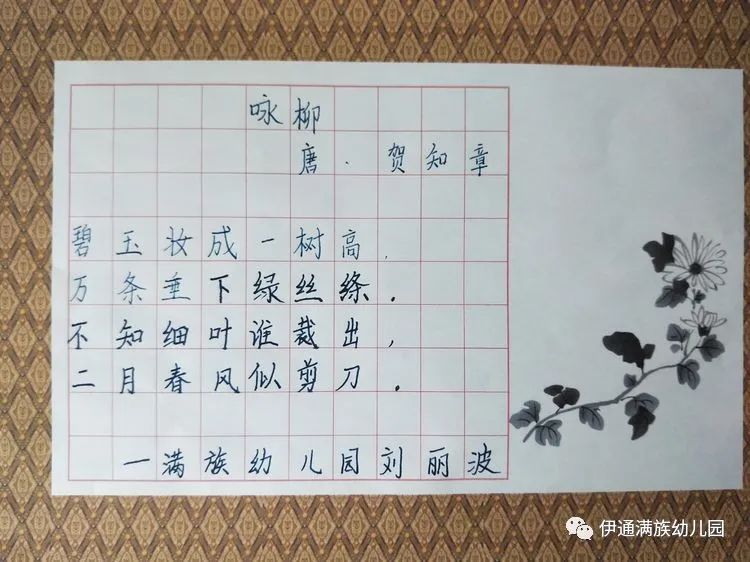 咏柳
唐·贺知章
碧玉妆成一树高,
万条垂下绿丝绦.
不知细叶谁裁出,
二月春风似剪刀.
一满族幼儿园刘丽波
伊通满族幼儿园